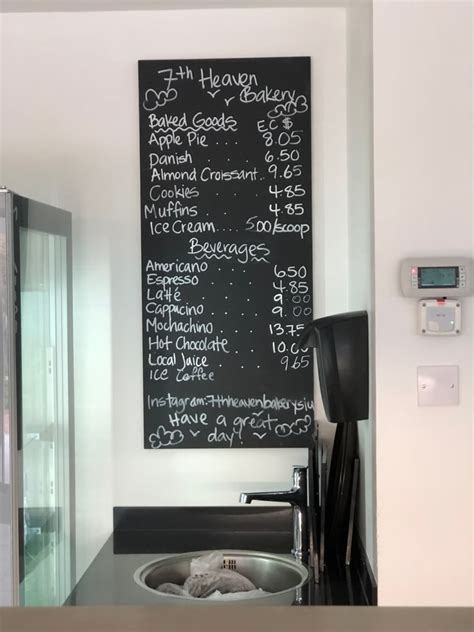 7th Heaven
Bakery
Baked Goods EC $
Apple Pie . . . 8.05
Danish . . . . 6.50
Almond Croissant.. 9.65
Cookies . . . . 4.85
Muffins . . . . 4.85
Ice Cream.... 5.00/scoop
Beverages
Americano . . . 6.50
Espresso . . . . 4.85
Latte . . . . 9.00
Cappucino . . . . 9.00
Mochachino . . . . 13.75
Hot Chocolate . . . 10.00
Local Juice . . . . 9.65
Ice Coffee
Instagram:7thheavenbakerysiu
Have a great
day!